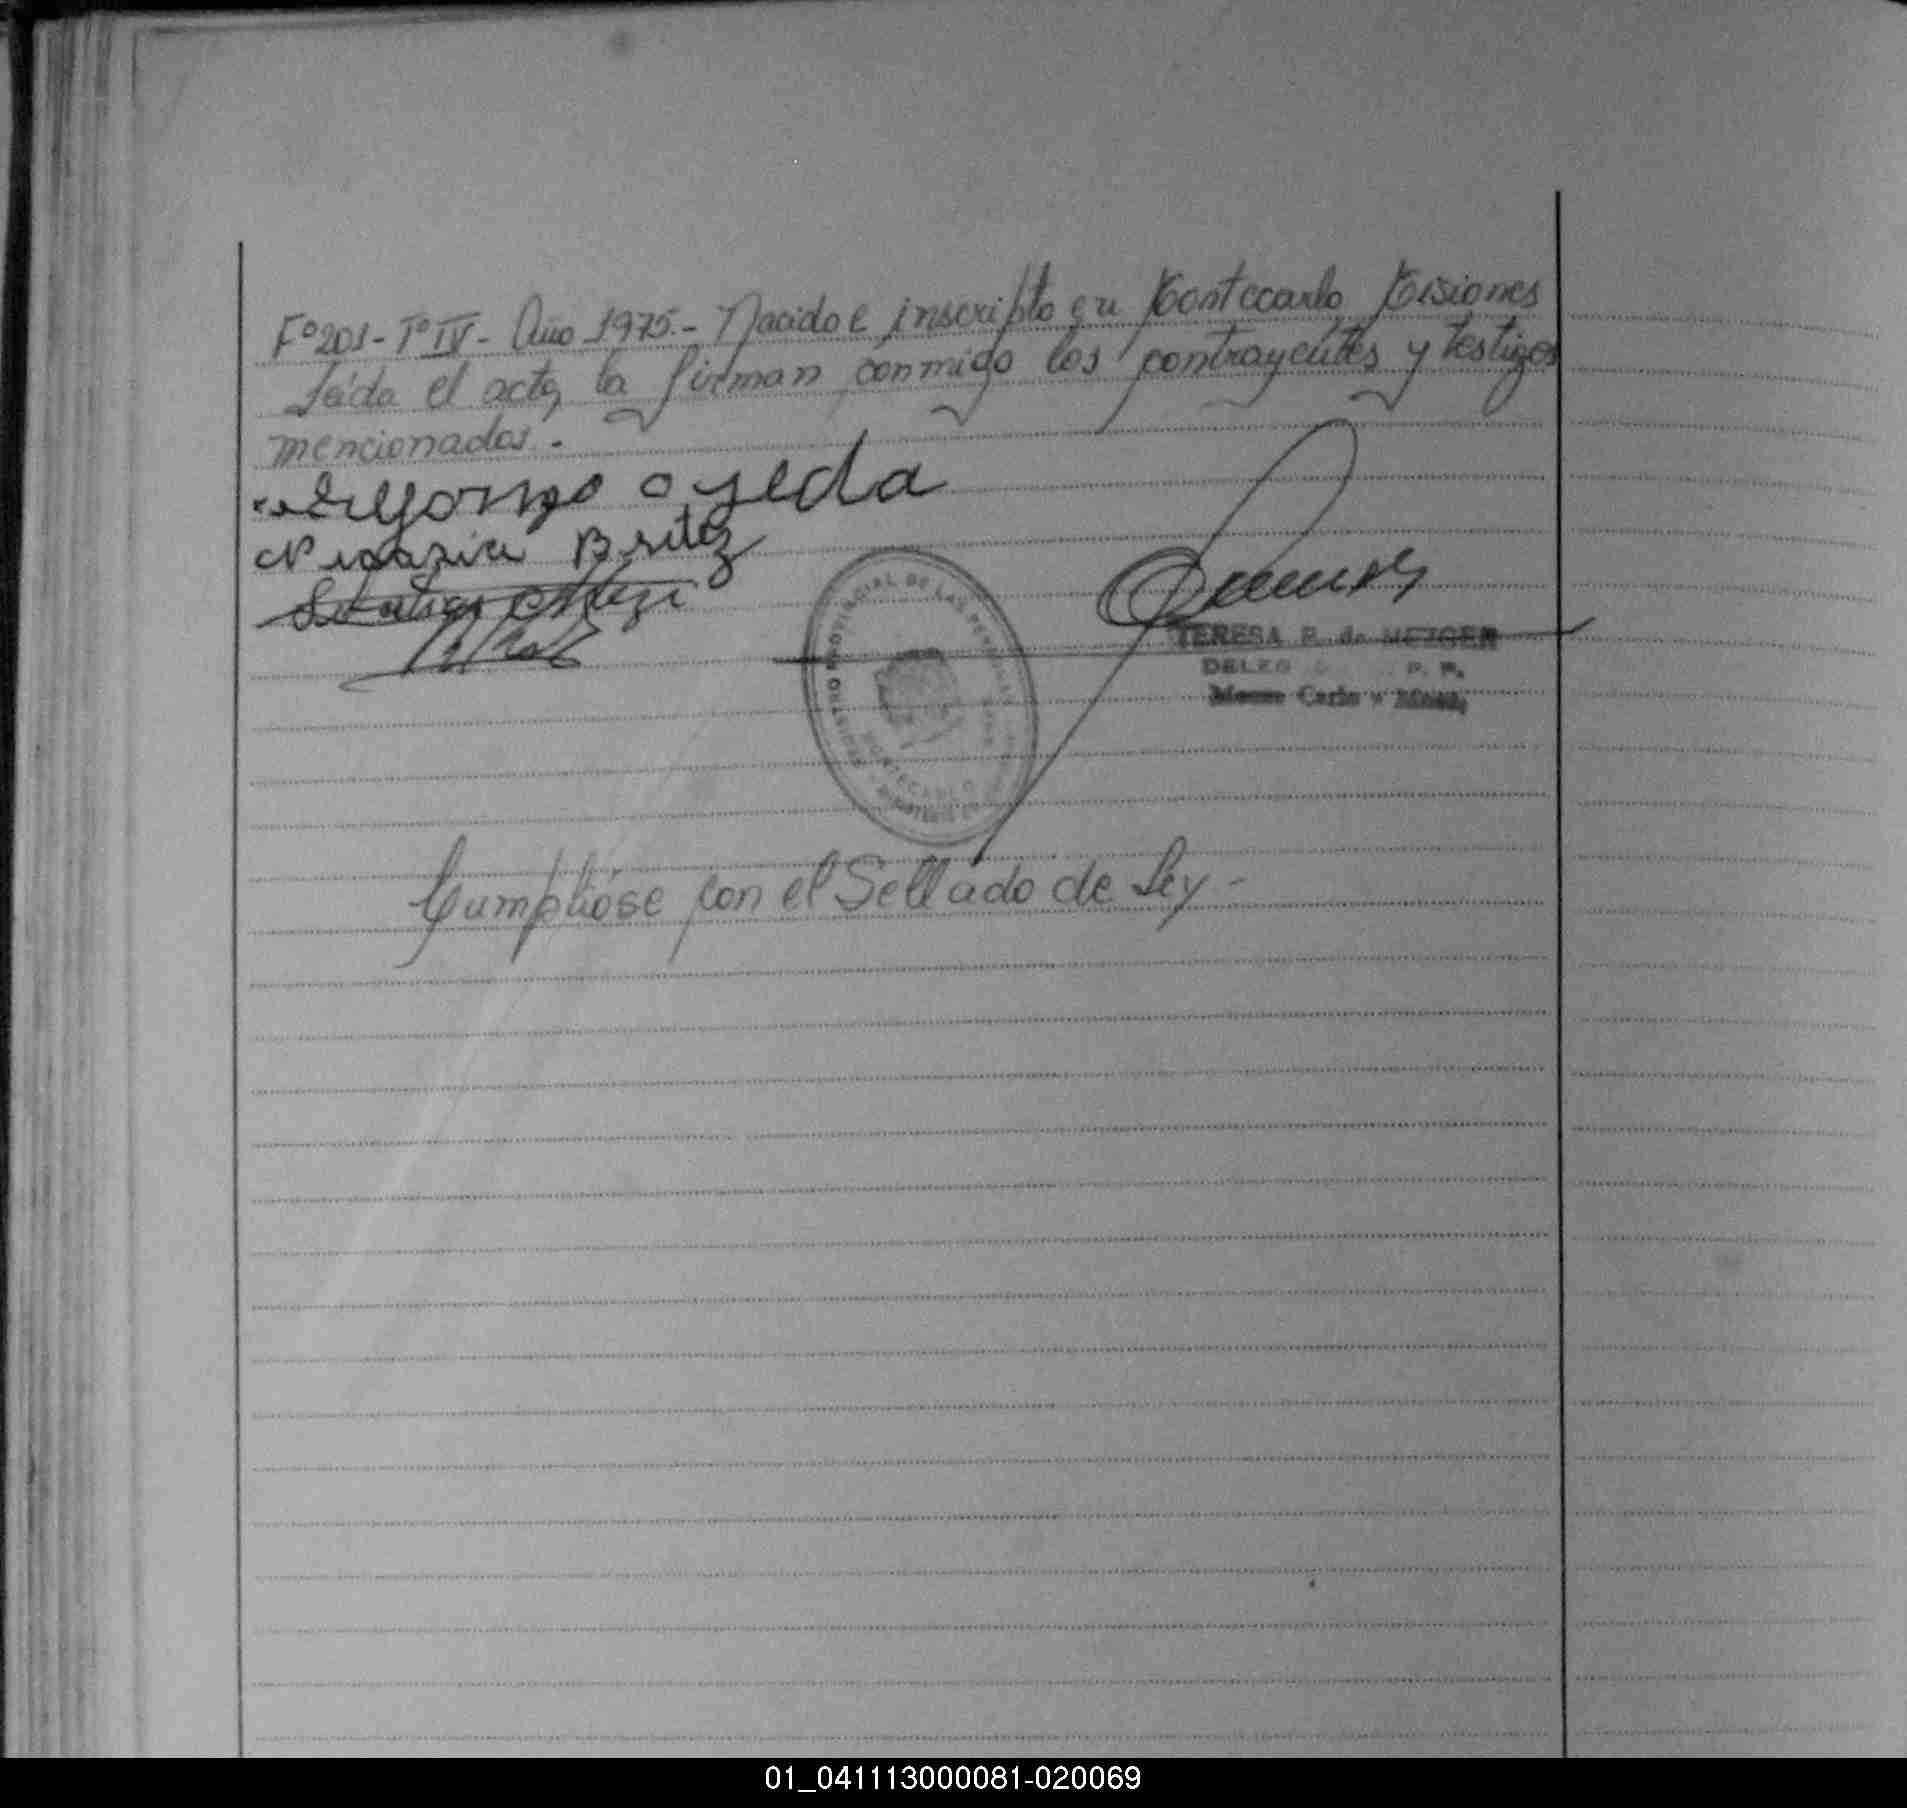 Fº 201 - Tº IV - Año 1975.- Nacido e inscripto en Montecarlo, Misiones
Leída el acta, la firman conmigo los contrayentes y testigos
mencionados.-
Ojeda
Nicasia Britez
REGISTRO PROVINCIAL DE LAS PERSONAS
MONTECARLO
TERESA R. de METZGER
DELEG P. P.
Monte Carlo - Mnes.
Cumplióse con el Sellado de Ley -
01_041113000081-020069